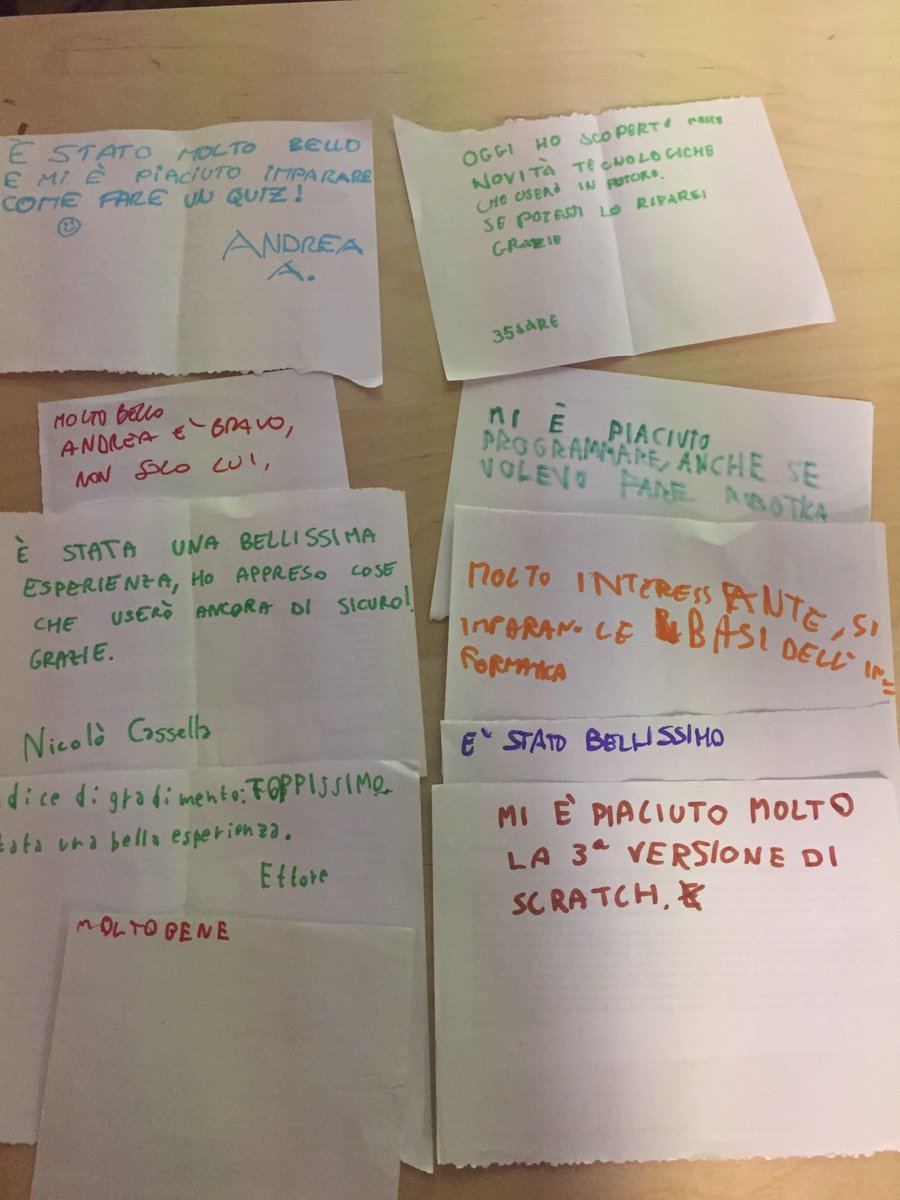 È STATO MOLTO BELLO
E MI È PIACIUTO IMPARARE
COME FARE UN QUIZ!
ANDREA
A.
MOLTO BELLO
ANDREA E' BRAVO,
NON SOLO LUI,
È STATA UNA BELLISSIMA
ESPERIENZA, HO APPRESO COSE
CHE USERÒ ANCORA DI SICURO!
GRAZIE.
Nicolò Cassella
dice di gradimento: TOPPISSIMO
tata una bella esperienza.
Ettore
MOLTO BENE
OGGI HO SCOPERTO MOLTE
NOVITÀ TECNOLOGICHE
CHE USERÒ IN FUTURO.
SE POTESSI LO RIFAREI
GRAZIE
MI È PIACIUTO
PROGRAMMARE, ANCHE SE
VOLEVO FARE ROBOTICA
MOLTO INTERESSANTE, SI
IMPARANO LE BASI DELL'IN=
FORMATICA
E' STATO BELLISSIMO
MI È PIACIUTO MOLTO
LA 3ª VERSIONE DI
SCRATCH.